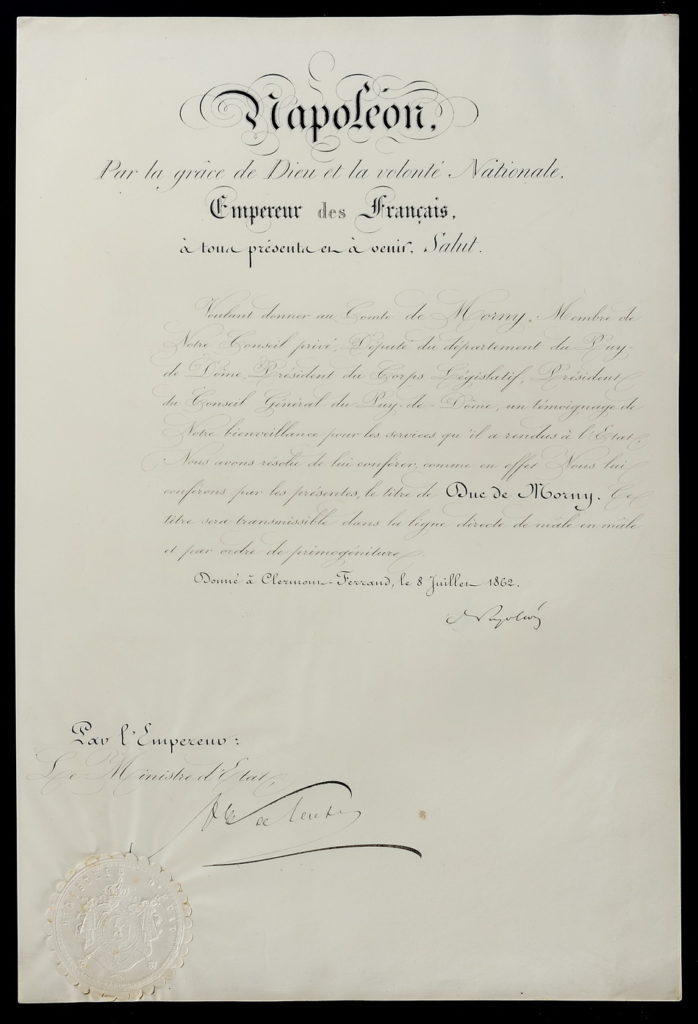 Napoléon,
Par la grâce de Dieu et la volonté Nationale,
Empereur des Français,
à tous présents et à venir, Salut.
Voulant donner au Comte de Morny, Membre de
Notre Conseil privé, Député du département du Puy-
de Dôme, Président du Corps Législatif, Président
du Conseil Général du Puy-de-Dôme, un témoignage de
Notre bienveillance pour les services qu'il a rendus à l'Etat,
Nous avons résolu de lui conférer, comme en effet Nous lui
conférons par les présentes, le titre de Duc de Morny. Ce
titre sera transmissible dans la ligne directe de mâle en mâle
et par ordre de primogéniture.
Donné à Clermont-Ferrand, le 8 Juillet 1862.
Napoléon
Par l'Empereur:
Le Ministre d'Etat,
MINISTERE D'ETAT